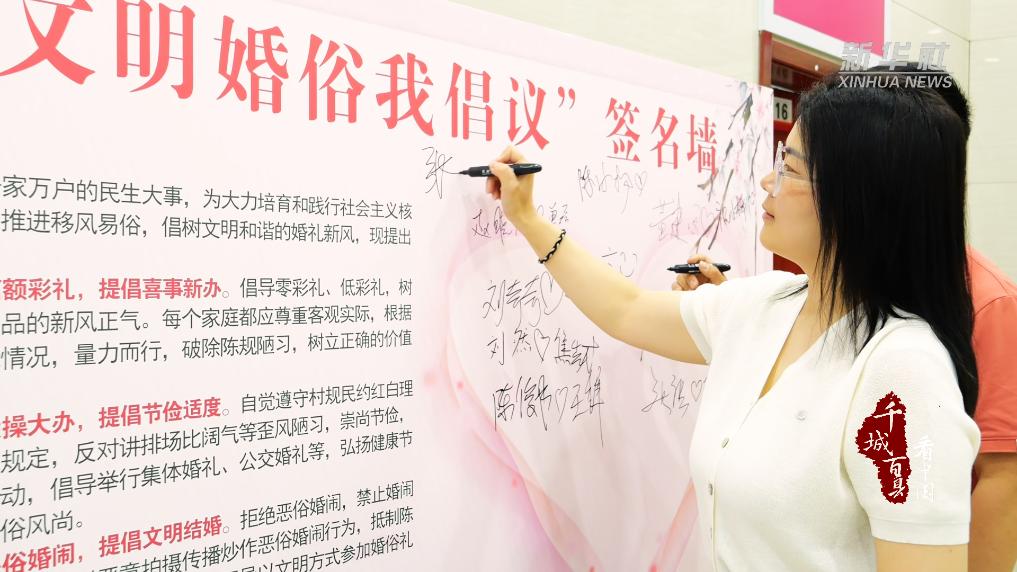 文明婚俗我倡议” 签名墙
新华社
XINHUA NEWS
16
家万户的民生大事，为大力培育和践行社会主义核
推进移风易俗，倡树文明和谐的婚礼新风，现提出
额彩礼，提倡喜事新办。倡导零彩礼、低彩礼，树
品的新风正气。每个家庭都应尊重客观实际，根据
情况，量力而行，破除陈规陋习，树立正确的价值
操大办，提倡节俭适度。自觉遵守村规民约红白理
规定，反对讲排场比阔气等歪风陋习，崇尚节俭，
动，倡导举行集体婚礼、公交婚礼等，弘扬健康节
俗风尚。
俗婚闹，提倡文明结婚。拒绝恶俗婚闹，禁止婚闹
拍摄传播炒作恶俗婚闹行为，抵制陈
以文明方式参加婚俗礼
张
刘奇奇♡
刘然♡焦
陈俊♡王
千城百县
看中国